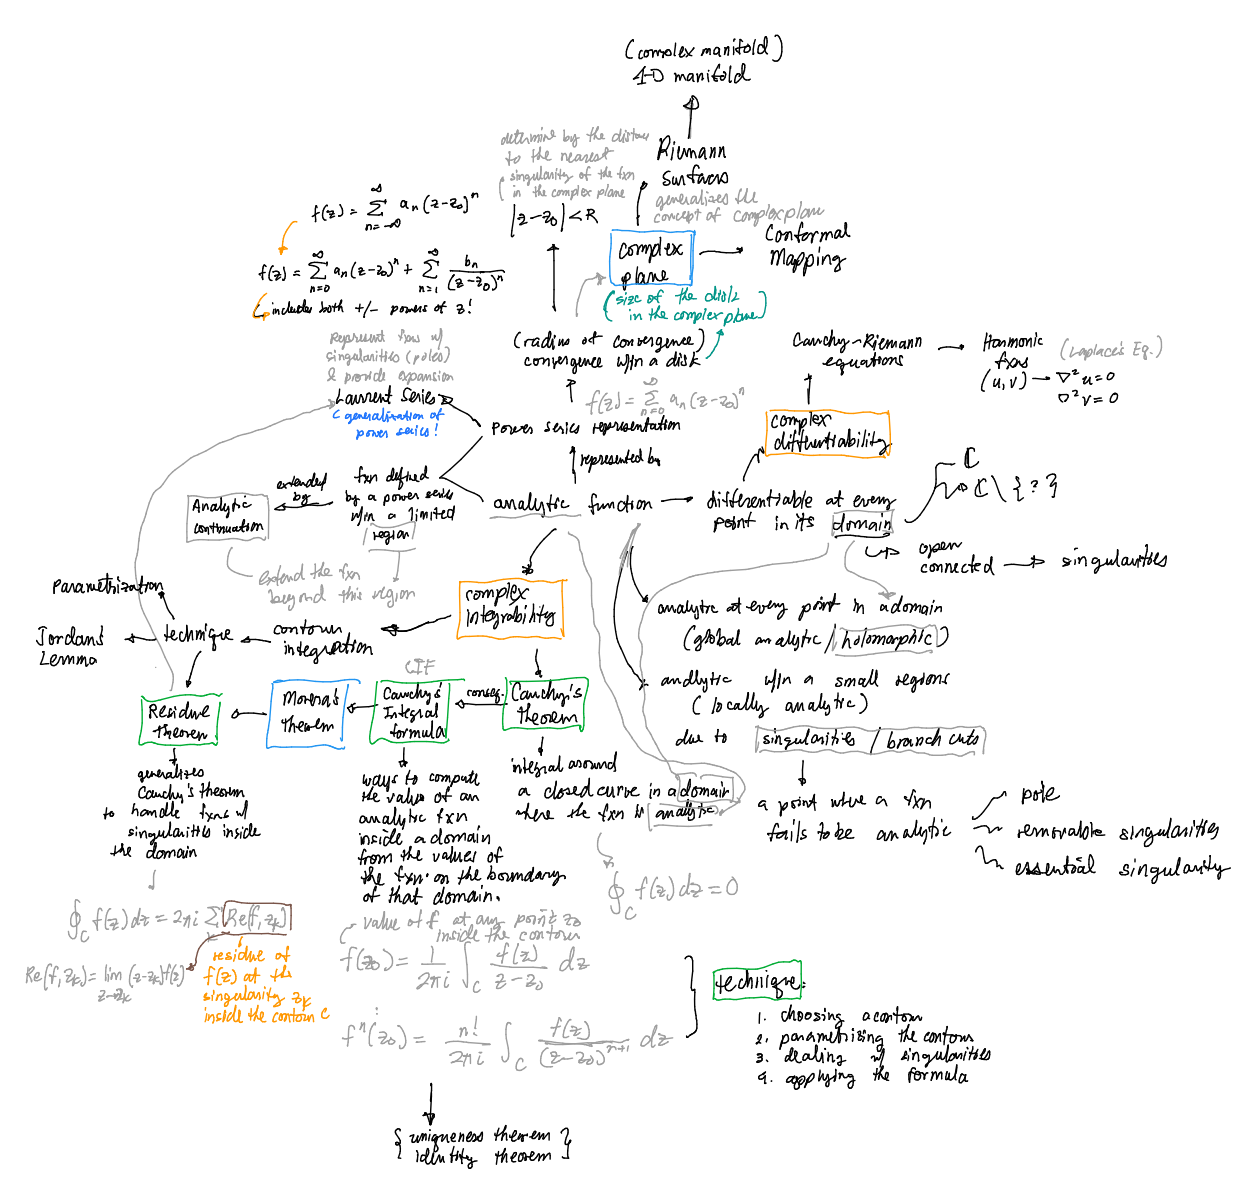 (complex manifold)
4-D manifold
determine by the distance
to the nearest
singularity of the fxn
in the complex plane
|z-z₀| < R
Riemann
Surfaces
generalizes the
concept of complex plane
complex
plane
Conformal
Mapping
(size of the disk
in the complex plane)
f(z) = ∑_{n=-∞}^{∞} aₙ(z-z₀)ⁿ
f(z) = ∑_{n=0}^{∞} aₙ(z-z₀)ⁿ + ∑_{n=1}^{∞} bₙ/(z-z₀)ⁿ
includes both +/- powers of z!
Represent fxns w/
singularities (poles)
& provide expansion
Laurent Series
generalization of
power series!
(radius of convergence)
convergence w/in a disk
f(z) = ∑_{n=0}^{∞} aₙ(z-z₀)ⁿ
Power series representation
represented by
Cauchy-Riemann
equations
Harmonic
fxns
(u, v)
(Laplace's Eq.)
∇²u = 0
∇²v = 0
complex
differentiability
analytic function
fxn defined
by a power series
w/in a limited
region
extended
by
Analytic
continuation
extend the fxn
beyond this region
differentiable at every
point in its domain
ℂ
ℂ \ { ? }
open
connected
singularities
analytic at every point in a domain
(global analytic / holomorphic)
analytic w/in a small regions
(locally analytic)
due to singularities / branch cuts
a point where a fxn
fails to be analytic
pole
removable singularities
essential singularity
complex
integrability
contour
integration
technique
Parametrization
Jordan's
Lemma
Residue
theorem
Morera's
theorem
CIF
Cauchy's
Integral
formula
conseq.
Cauchy's
theorem
generalizes
Cauchy's theorem
to handle fxns w/
singularities inside
the domain
∮_C f(z) dz = 2πi ∑_k Re(f, z_k)
Re(f, z_k) = lim_{z→z_k} (z-z_k) f(z)
residue of
f(z) at the
singularity z_k
inside the contour C
ways to compute
the value of an
analytic fxn
inside a domain
from the values of
the fxn on the boundary
of that domain.
value of f at any point z₀
inside the contour
f(z₀) = 1/2πi ∫_C f(z)/(z-z₀) dz
fⁿ(z₀) = n!/2πi ∫_C f(z)/(z-z₀)ⁿ⁺¹ dz
integral around
a closed curve in a domain
where the fxn is analytic
∮_C f(z) dz = 0
technique:
1. choosing a contour
2. parametrizing the contour
3. dealing w/ singularities
4. applying the formula
{ uniqueness theorem }
{ identity theorem }